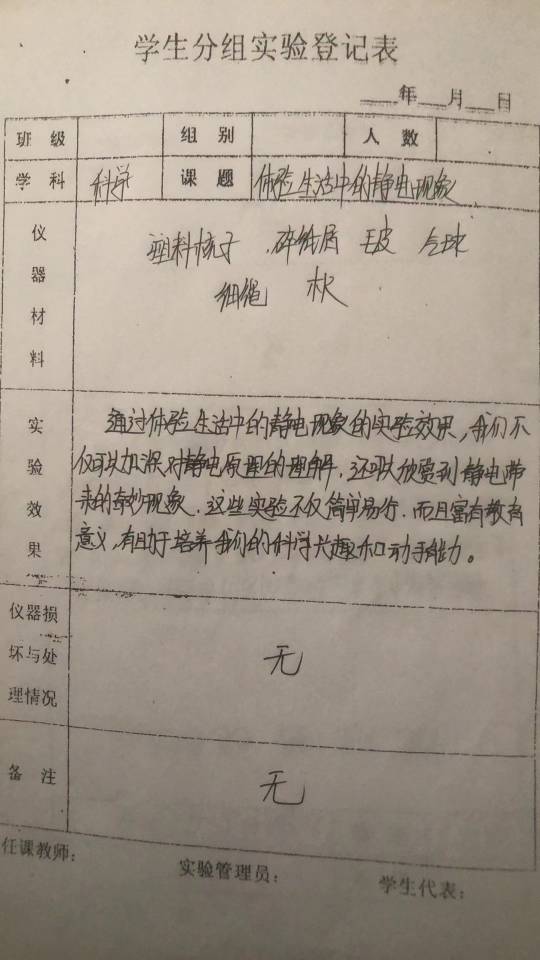 学生分组实验登记表
年 月 日
班级 组别 人数
学科 科学 课题 体验生活中的静电现象
仪器材料
塑料梳子 碎纸屑 毛皮 气球
细绳
实验效果
通过体验生活中的静电现象的实验效果,我们不
仅可以加深对静电原理的理解,还可以欣赏到静电带
来的奇妙现象.这些实验不仅简单易行.而且富有教育
意义,有助于培养我们的科学兴趣和动手能力。
仪器损
坏与处
理情况
无
备注 无
任课教师: 实验管理员: 学生代表: